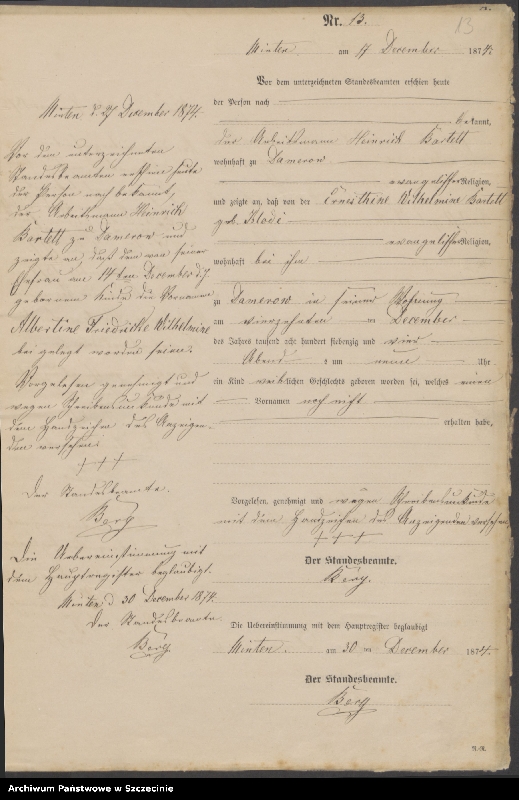 Nr. 13.
13
Minten am 17 December 1874
Vor dem unterzeichneten Standesbeamten erschien heute
der Person nach
bekannt,
der Arbeitsmann Heinrich Bartelt
wohnhaft zu Damerow
evangelischer Religion,
und zeigte an, daß von der Ernesthine Wilhelmine Bartelt
geb. Klodé
evangelischer Religion,
wohnhaft bei ihm
zu Damerow in seiner Wohnung
am vierzehnten ten December
des Jahres tausend acht hundert siebenzig und vier
Abends um neun Uhr
ein Kind weiblichen Geschlechts geboren worden sei, welches einen
Vornamen noch nicht
erhalten habe,
Vorgelesen, genehmigt und wegen Schreibensunkunde
mit dem Handzeichen des Anzeigenden versehen
+++
Der Standesbeamte.
Berg.
Die Uebereinstimmung mit dem Hauptregister beglaubigt
Minten. am 30 ten December 1874.
Der Standesbeamte.
Berg
Minten d. 27 December 1874.
Vor dem unterzeichneten
Standesbeamten erschien heute
der Person nach bekannt,
der Arbeitsmann Heinrich
Bartelt zu Damerow und
zeigte an, daß dem von seiner
Ehefrau am 14ten December d. J.
geborenen Kinde die Vornamen
Albertine Friedricke Wilhelmine
beigelegt worden seien.
Vorgelesen genehmigt und
wegen Schreibensunkunde mit
dem Handzeichen des Anzeigen-
den versehen:
+++
Der Standesbeamte.
Berg
Die Uebereinstimmung mit
dem Hauptregister beglaubigt.
Minten d. 30 December 1874.
Der Standesbeamte
Berg
Archiwum Państwowe w Szczecinie